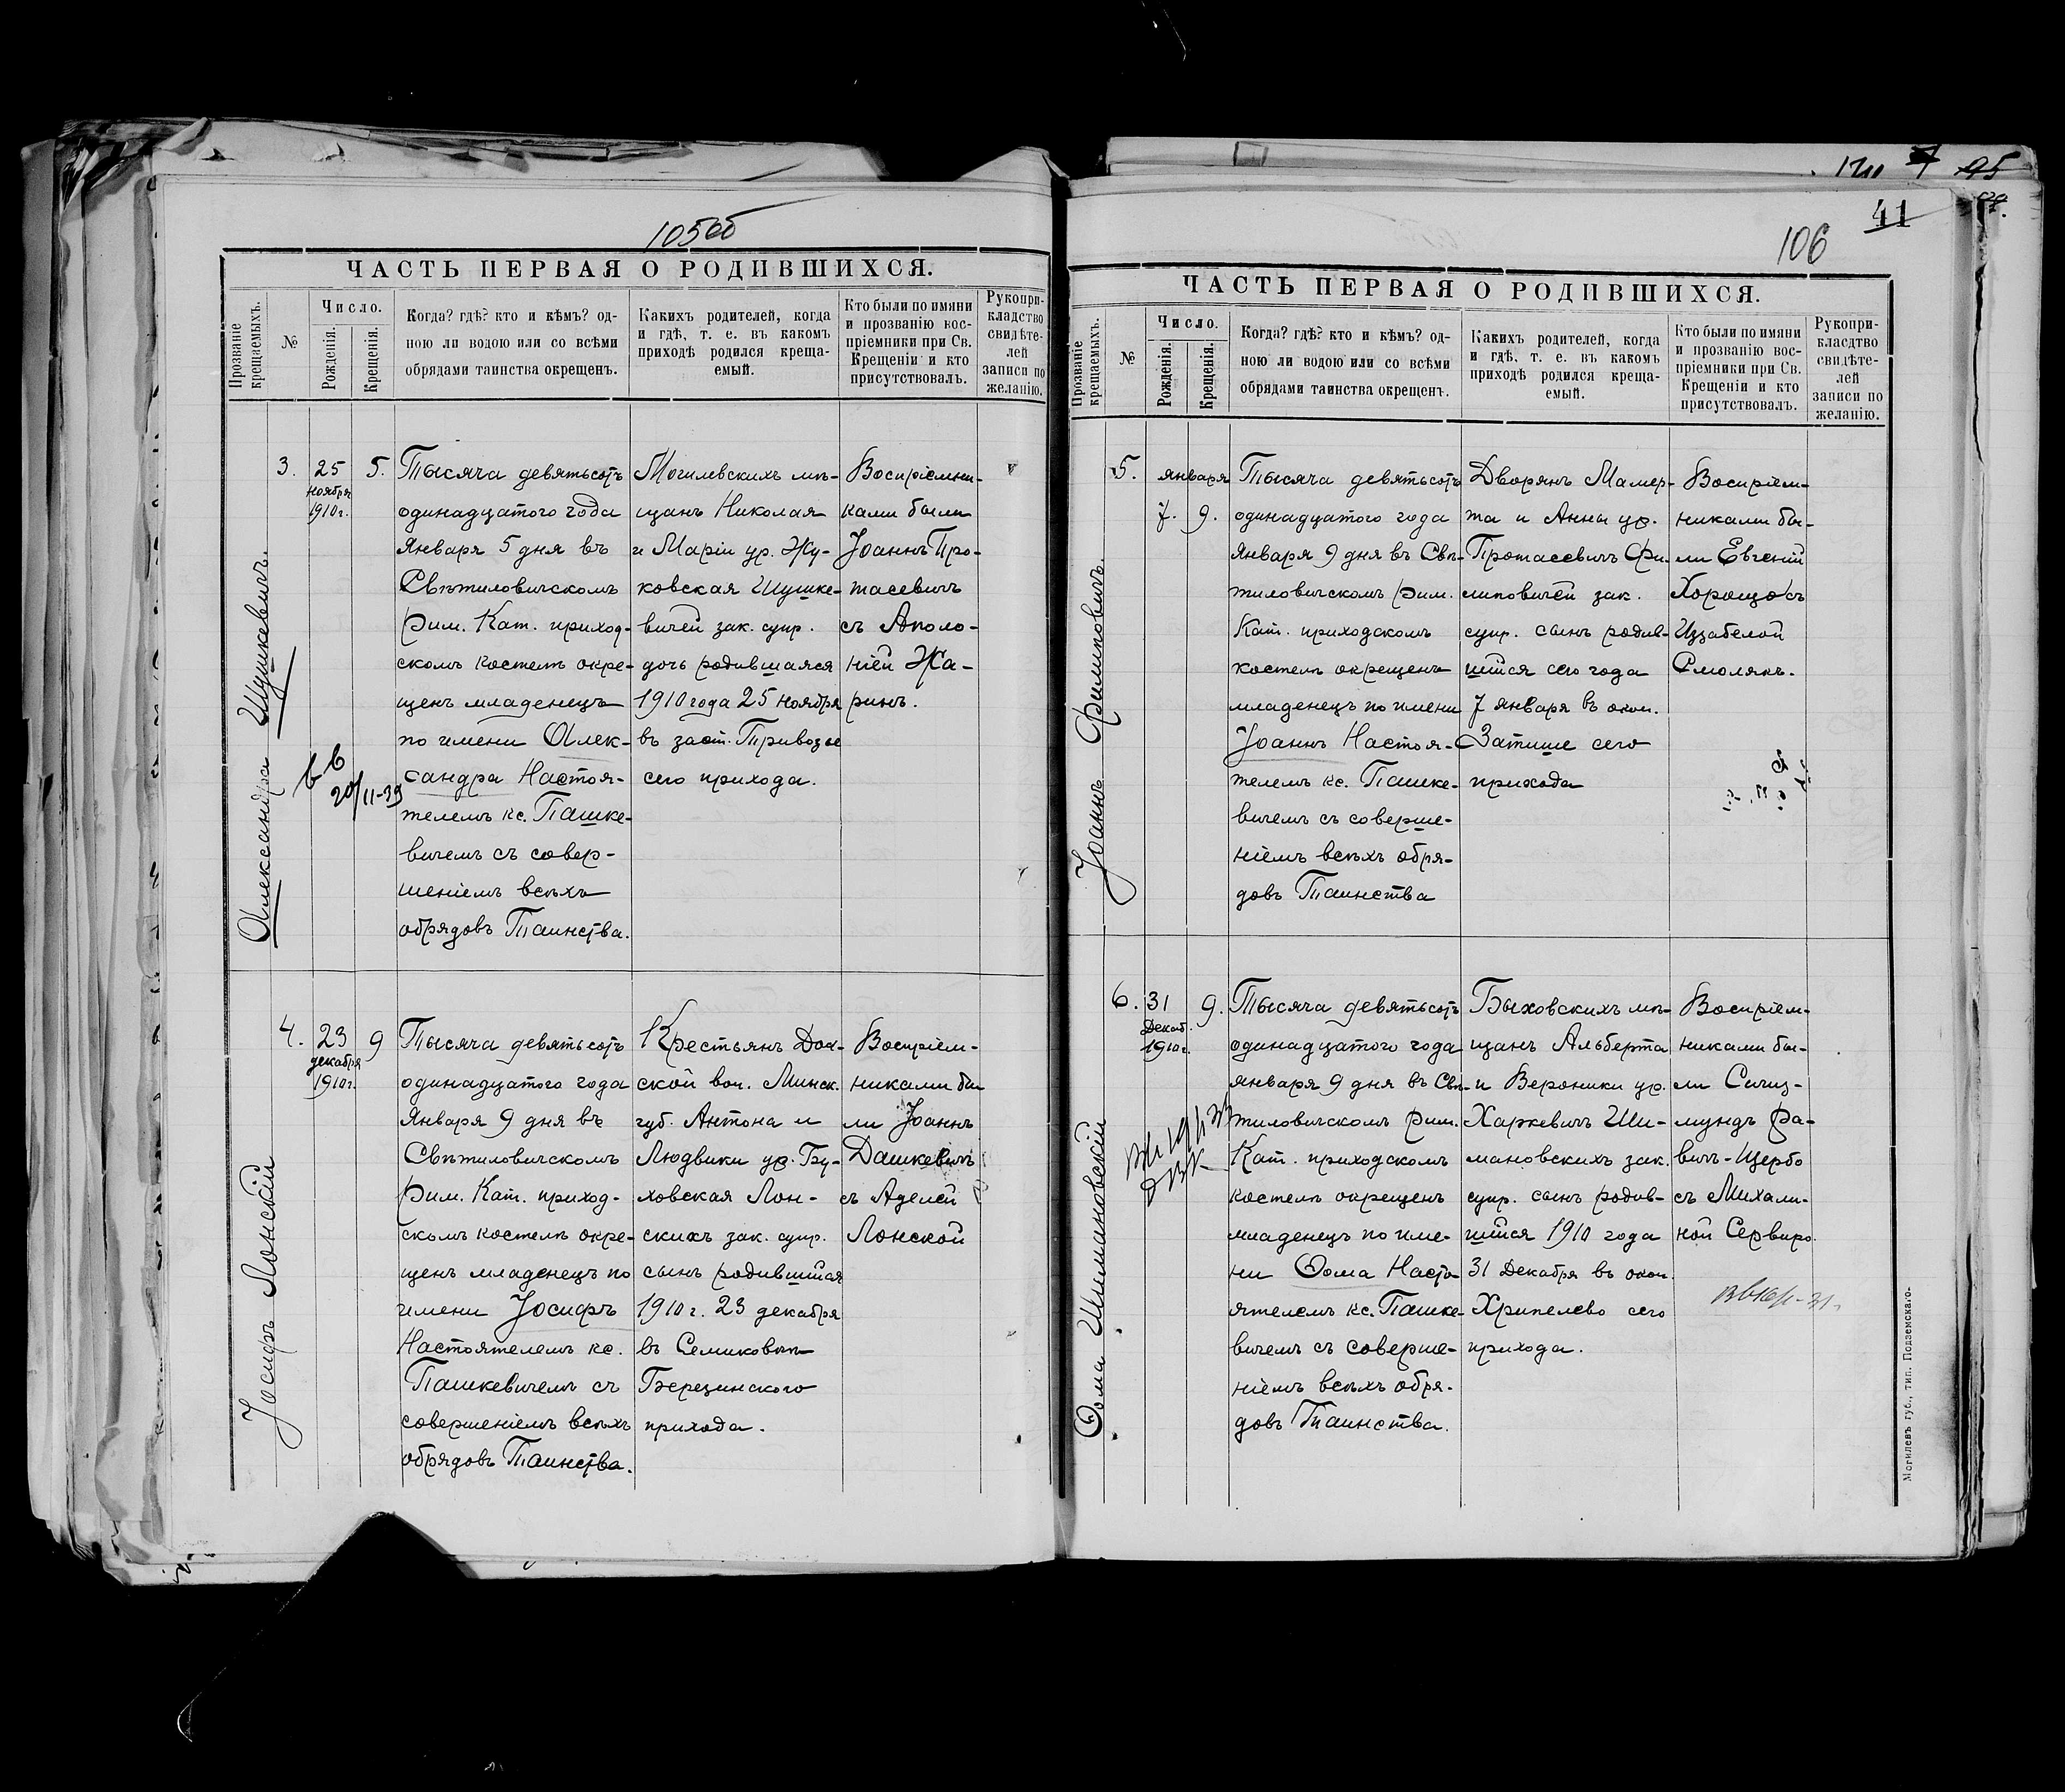 105об
ЧАСТЬ ПЕРВАЯ О РОДИВШИХСЯ.
Прозваніе крещаемыхъ.
№
Число.
Рожденія.
Крещенія.
Когда? гдѣ? кто и кѣмъ? од-
ною ли водою или со всѣми
обрядами таинства окрещенъ.
Какихъ родителей, когда
и гдѣ, т. е. въ какомъ
приходѣ родился креща-
емый.
Кто были по имяни
и прозванію вос-
пріемники при Св.
Крещеніи и кто
присутствовалъ.
Рукопри-
кладство
свидѣте-
лей
записи по
желанію.
Александра Шушкевичъ.
3.
25
ноября
1910г.
5.
Тысяча девятьсотъ
одинадцатого года
Января 5 дня въ
Свѣтиловичскомъ
Рим. Кат. приход-
скомъ костелѣ окре-
щенъ младенецъ
по имени Алек-
сандра Настоя-
телемъ кс. Пашке-
вичемъ съ совер-
шеніемъ всѣхъ
обрядовъ Таинства.
Могилевскихъ мѣ-
щанъ Николая
и Маріи ур. Жу-
ковская Шушке-
вичей зак. супр.
дочь родившаяся
1910 года 25 ноября
въ заст. Привозье
сего прихода.
Воспріемни-
ками были
Іоаннъ Про-
тасевичъ
съ Аполо-
ніей Жа-
ринъ.
20/11-39
Іосифъ Лонскій
4.
23
декабря
1910г.
9
Тысяча девятьсотъ
одинадцатого года
Января 9 дня въ
Свѣтиловичскомъ
Рим. Кат. приход-
скомъ костелѣ окре-
щенъ младенецъ по
имени Іосифъ
Настоятелемъ кс.
Пашкевичемъ съ
совершеніемъ всѣхъ
обрядовъ Таинства.
Крестьянъ
ской вол. Минск.
губ. Антона и
Людвики ур. Бу-
ховская Лон-
скихъ зак. супр.
сынъ родившійся
1910 г. 23 декабря
въ Семиковѣ
Березинского
прихода.
Воспріем-
никами бы
ли Іоаннъ
Дашкевичъ
съ Аделей
Лонской
41
106
ЧАСТЬ ПЕРВАЯ О РОДИВШИХСЯ.
Прозваніе крещаемыхъ.
№
Число.
Рожденія.
Крещенія.
Когда? гдѣ? кто и кѣмъ? од-
ною ли водою или со всѣми
обрядами таинства окрещенъ.
Какихъ родителей, когда
и гдѣ, т. е. въ какомъ
приходѣ родился креща-
емый.
Кто были по имяни
и прозванію вос-
пріемники при Св.
Крещеніи и кто
присутствовалъ.
Рукопри-
кладство
свидѣте-
лей
записи по
желанію.
Іоаннъ Филиповичъ.
5.
января
7.
9.
Тысяча девятьсотъ
одинадцатого года
Января 9 дня въ Свѣ-
тиловичскомъ рим.
Кат. приходскомъ
костелѣ окрещенъ
младенецъ по имени
Іоаннъ Настоя-
телемъ кс. Пашке-
вичемъ съ соверше-
ніемъ всѣхъ обря-
довъ Таинства
Дворянъ Мамер-
та и Анны ур.
Протасевичъ Фи-
липовичей зак.
супр. сынъ родив-
шійся сего года
7 января въ окол.
Затише сего
прихода
Воспріем-
никами бы-
ли Евгеній
Хороща съ
Иззабелой
Смолякъ.
Ѳома Шимановскій
6.
31
Декаб.
1910г.
9.
Тысяча девятьсотъ
одинадцатого года
января 9 дня въ Свѣ-
тиловичскомъ рим.
Кат. приходскомъ
костелѣ окрещенъ
младенецъ по име-
ни Ѳома Насто-
ятелемъ кс. Пашке-
вичемъ съ соверше-
ніемъ всѣхъ обря-
довъ Таинства.
Быховскихъ мѣ-
щанъ Альберта
и Вероники ур.
Харкевичъ Ши-
мановскихъ зак.
супр. сынъ родив-
шійся 1910 года
31 Декабря въ окол.
Хрипелево сего
прихода.
Воспріем-
никами бы-
ли Сигиз-
мундъ Ра-
вичъ-Щербо
съ Михали-
ной Сервиро.
Могилевъ губ., тип. Подземскаго.